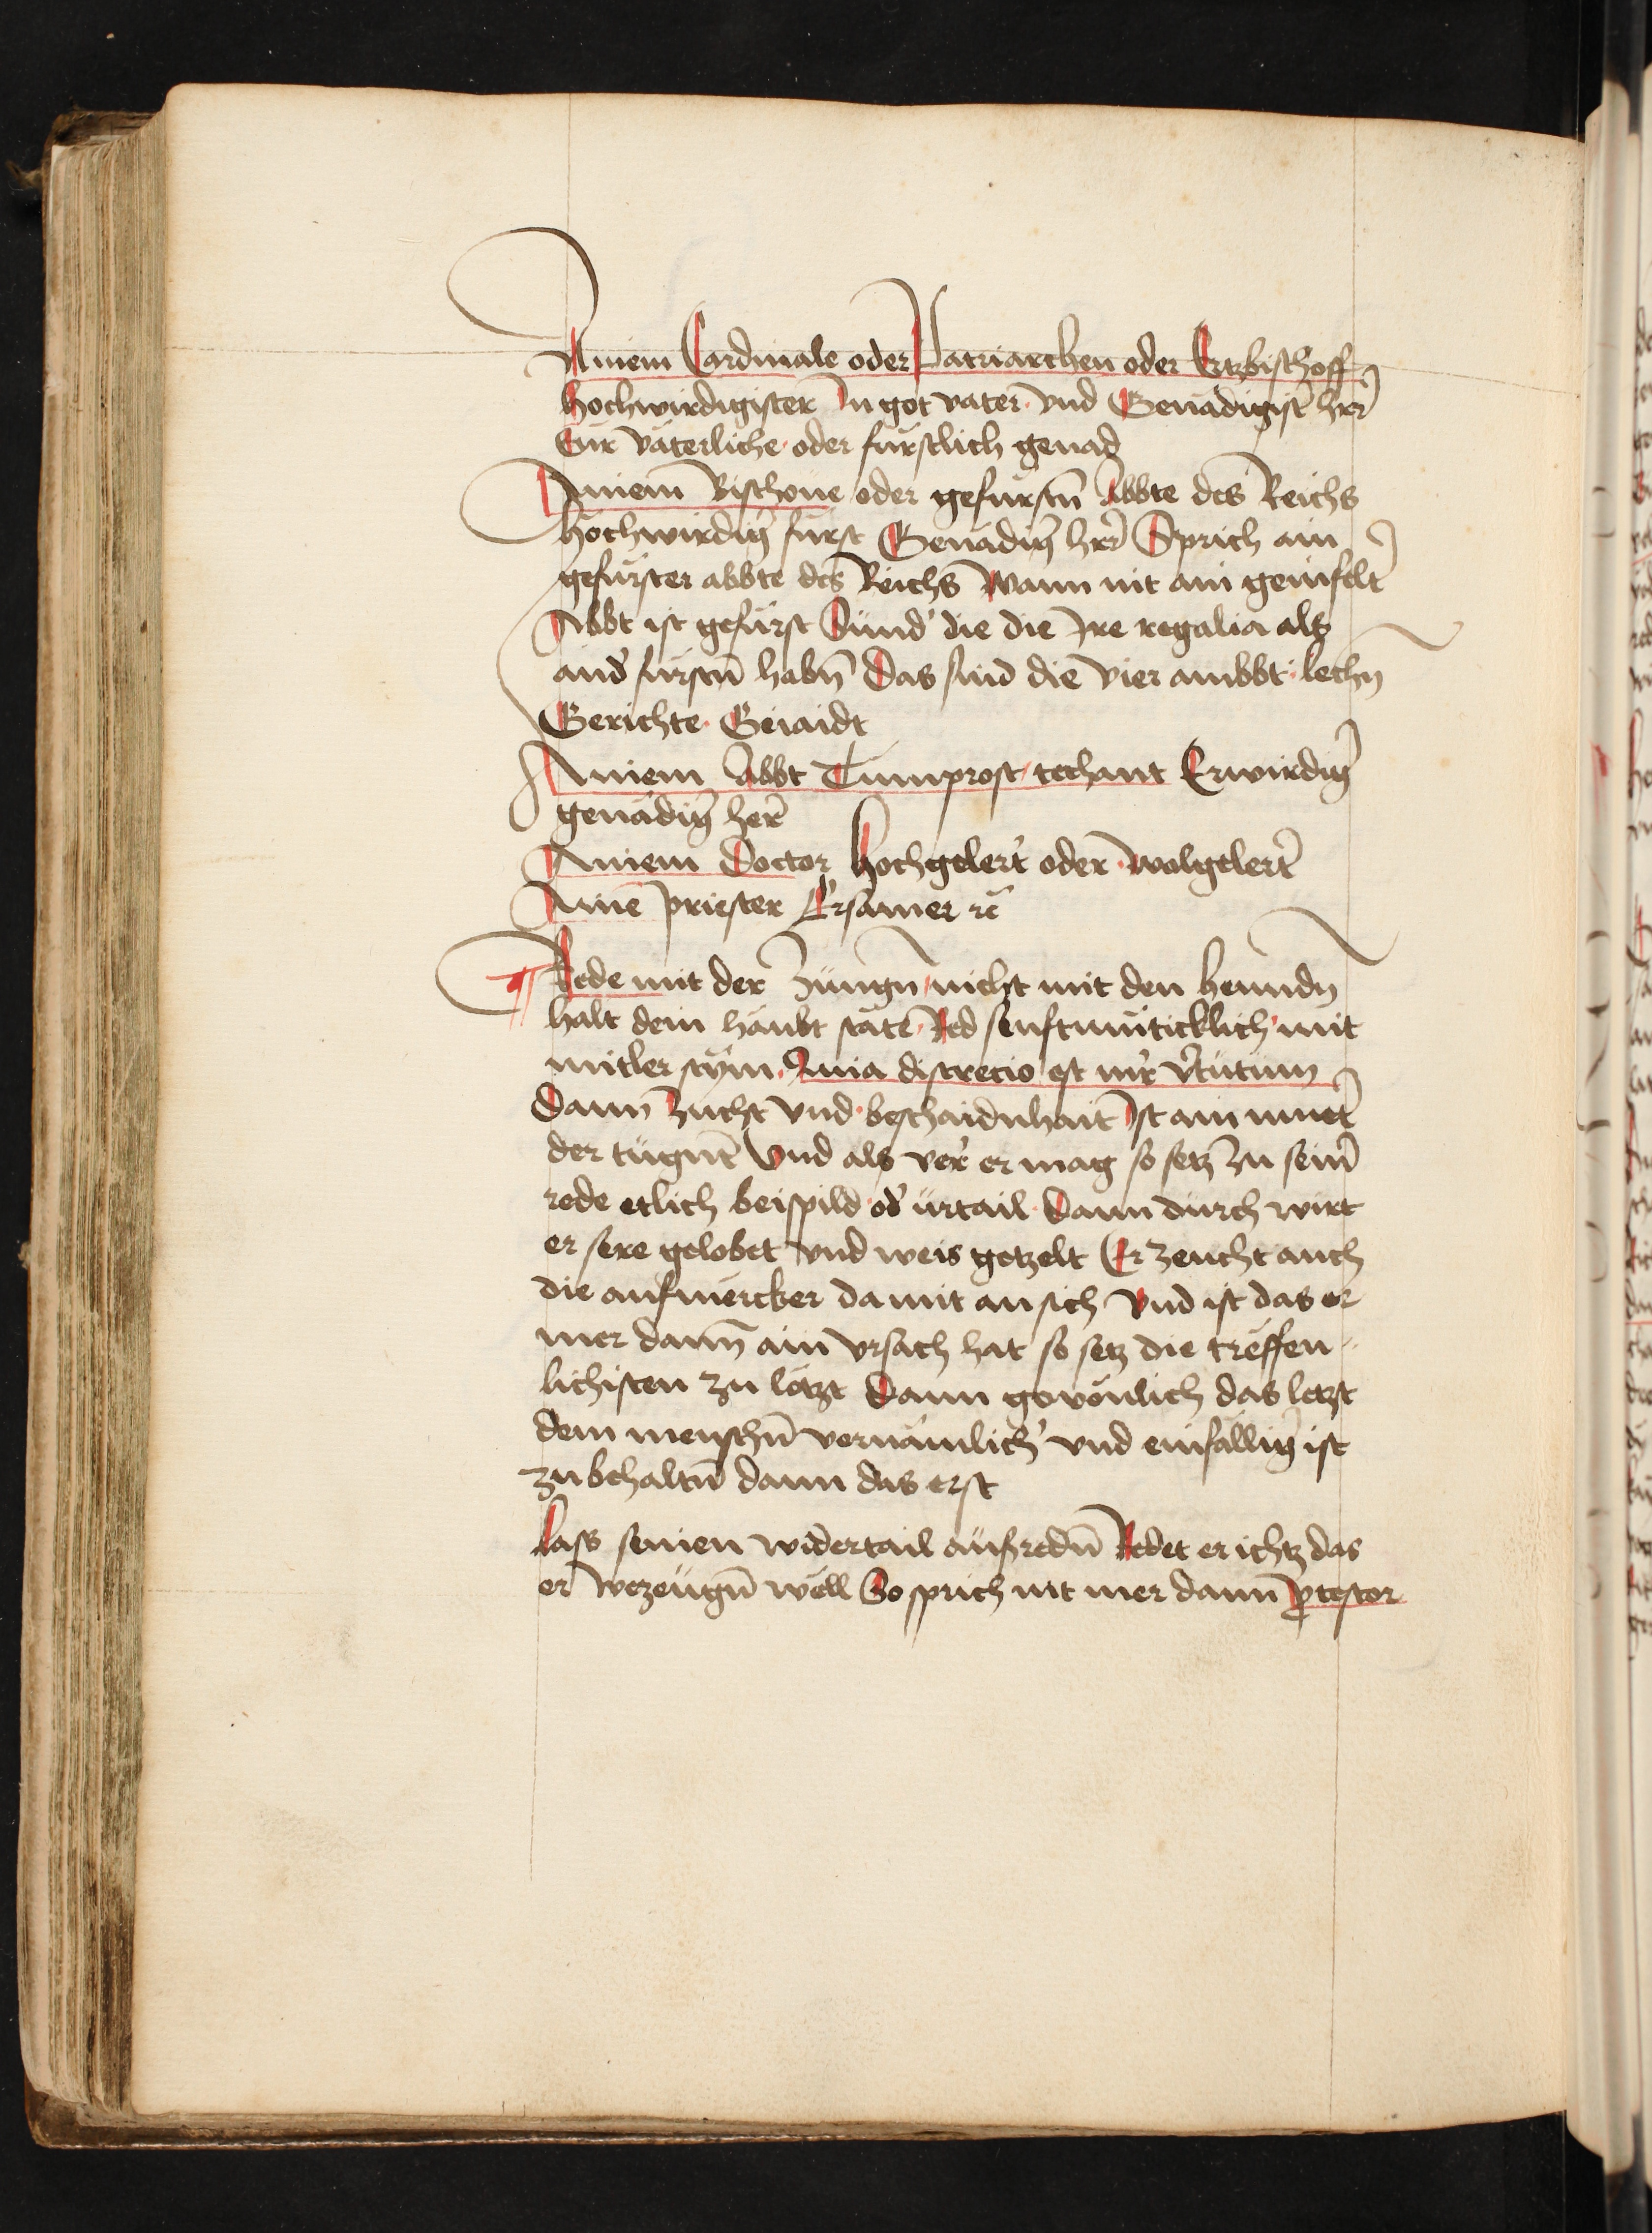 Ainem Cardinale oder Patriarchen oder Ertzbischoff
hochwirdigister In got vater vnd Genädigist̄ hr̄r
Eur väterliche oder fürstlich genad
Ainem Bischoue oder gefürstn̄ Abbte des Reichs
hochwirdiḡ fürst Genädiḡ hr̄r Sprich ain
gefürster abbte des Reichs wann nit ain geinfelt̄
Abbt ist gefürst Sund̄ die die Ire regalia als
and̄ fürstn̄ habn̄ Das sind die vier ambbt lechn̄
Gerichte Geiaidt
Ainem Abbt Tumprost techant Erwirdiḡ
genädiḡ her̄
Ainem Doctor hochgelert̄ oder wolgelert̄
Ainē priester Ersamer rc̄
¶ Rede mit der Zungn̄ nicht mit den henndn̄
halt dein haubt stäte Red senftmüticklich mit
mitler stym Quia discrecio est mr̄ v̄tutum
Dann zucht vnd beschaidnhait Ist ain muet̄
der tugnt̄ Vnd als ver̄ er mag so setz zu sein̄
rede etlich beispild od̄ urtail Dann durch wirt
er sere gelobet vnd weis getzelt Er zeucht auch
die aufmercker damit an sich Vnd ist das er
mer dann̄ ain vrsach hat so setz die treffen
lichisten zu lötzt Dann gewönlich das letzt
dem menschn̄ vernämlich̄ vnd einfälliḡ ist
zu behaltn̄ dann das erst
Lass seinen widertail aufredn̄ Redet er ichtz das
er wezeugn̄ wëll So sprich nit mer dann ꝓtestor